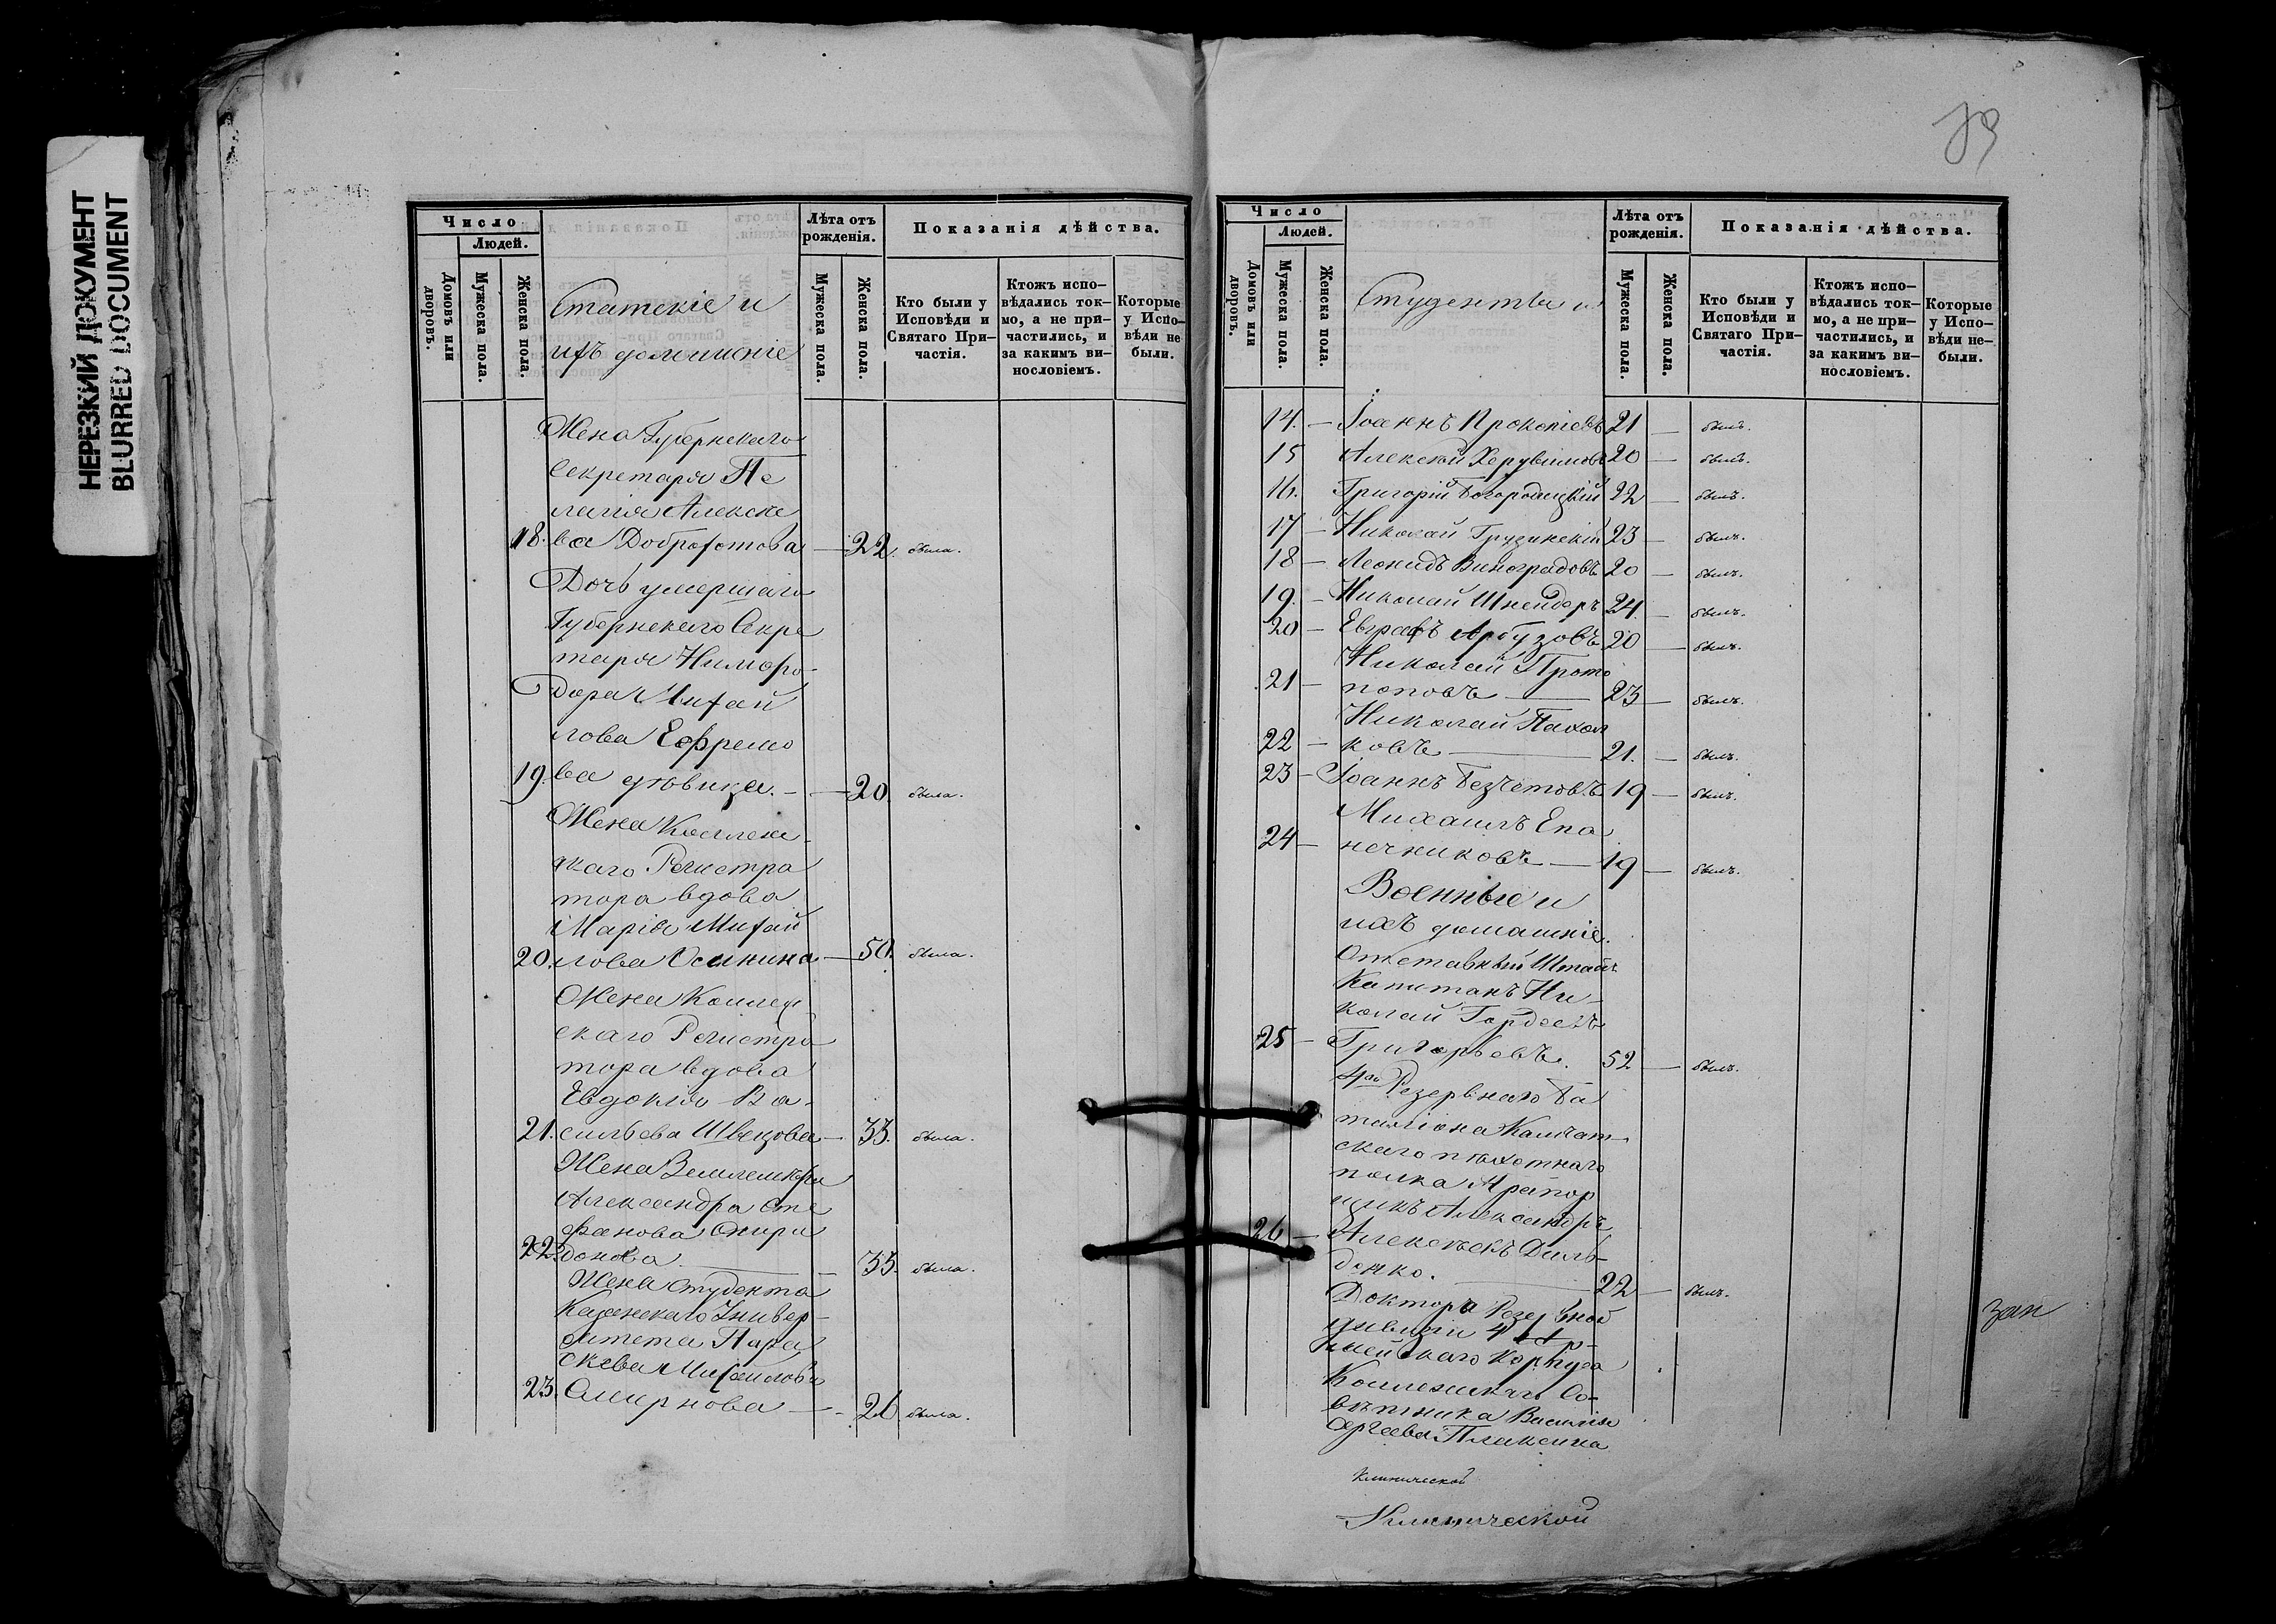 НЕРЕЗКИЙ ДОКУМЕНТ
BLURRED DOCUMENT
Число
Людей.
Домовъ или дворовъ.
Мужеска пола.
Женска пола.
Статскіе и
ихъ домашніе
Лѣта отъ рожденія.
Мужеска пола.
Женска пола.
Показанія дѣйства.
Кто были у Исповѣди и Святаго При-частія.
Ктожъ испо-вѣдались ток-мо, а не при-частились, и за какимъ ви-нословіемъ.
Которые у Испо-вѣди не были.
Жена Губернскаго
Секретаря Пе
лагія Алексѣе
18. ва Доброхотова — 22. была.
Дочь умершаго
Губернскаго Секре
таря Нимфо-
дора Михай
лова Ефремо
19. ва дѣвица. — 20. была.
Жена Коллеж-
скаго Регистра
тора вдова
Марія Михай
20. лова Осинина — 50. была.
Жена Коллеж
скаго Регистра
тора вдова
Евдокія Ва-
21. сильева Швецова — 33. была.
Жена Землемѣра
Александра Сте
фанова Спири
22. донова. — 33. была.
Жена студента
Казанскаго Универ-
ситета Парас
кева Михайлова
23. Смирнова — 26 была.
Число
Людей.
Домовъ или дворовъ.
Мужеска пола.
Женска пола.
Студенты и
Лѣта отъ рожденія.
Мужеска пола.
Женска пола.
Показанія дѣйства.
Кто были у Исповѣди и Святаго При-частія.
Ктожъ испо-вѣдались ток-мо, а не при-частились, и за какимъ ви-нословіемъ.
Которые у Испо-вѣди не-были.
14. — Іоаннъ Прокопіевъ 21 — былъ.
15 Алексѣй Херувимовъ 20 — былъ.
16. Григорій Богородицкій 22 — былъ.
17 — Николай Грузинскій 23 — былъ.
18 — Леонидъ Виноградовъ 20 — былъ.
19. — Николай Шнейдеръ 24. — былъ.
20 — Евграфъ Арбузовъ 20 — былъ.
Николай Прото
21 — поповъ — 23 — былъ.
Николай Пахол
22 — ковъ — 21. — былъ.
23 — Іоаннъ Безчетовъ 19 — былъ.
Михаилъ Епа
24 — нечниковъ — 19 — былъ.
Военные и
ихъ домашніе.
Отставный Штабсъ
Капитанъ Ни-
колай Гордеевъ
25 — Григорьевъ. 52 — былъ.
4го Резервнаго Ба
таліона Камчат-
скаго пѣхотнаго
полка Прапор
щикъ Александръ
26 — Алексѣевъ Диль-
денко. — 22 — былъ.
Доктора Резервной
дивизіи 4 Ар-
мейскаго Корпуса
Коллежскаго Со-
вѣтника Василія
Сергеева Плаксина
Клинической
Клинической